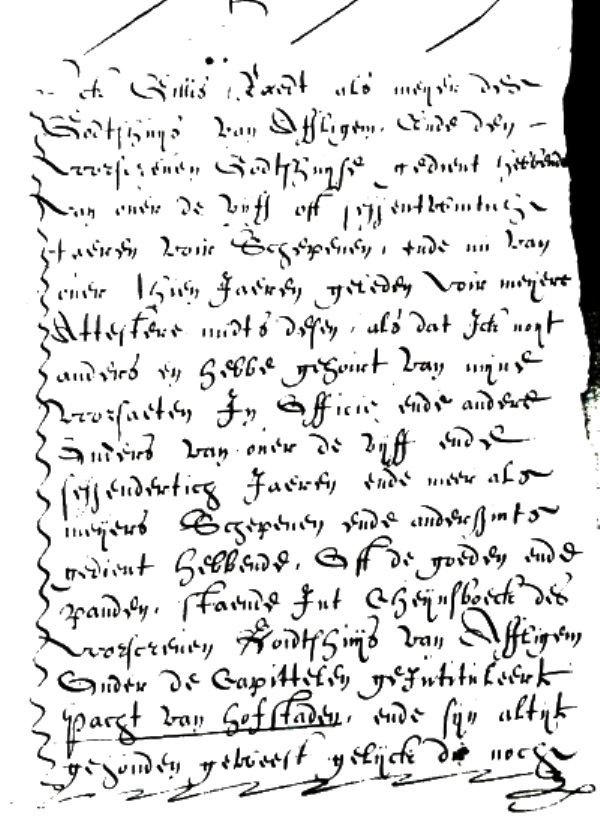 Ick Gillis Raedt als meyer des
Godtshuys van Affligem. Ende den
voorscreven Godtshuyse gedient hebbende
van over de vyff oft sessentwintich
Jaeren voir Schepenen, ende nu van
over thien Jaeren geleden voir meyere
Attestere midts desen, als dat Ick noyt
anders en hebbe gehoirt van myne
voorsaeten In Officie ende andere
Ouders van over de vyff ende
sessendertich Jaeren ende meer als
meyers Schepenen ende anderssints
gedient hebbende, Off de goeden ende
panden, staende Int Cheynsboeck des
voorscreven Goidtshuys van Affligem
Onder de Capittelen geIntituleert
pacht van hofstaden, ende syn altyt
gehouden geweest gelyck die noch